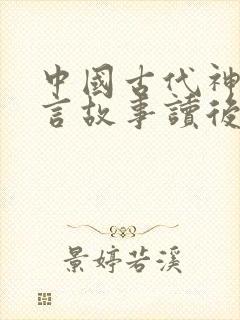 中國古代神
言故事讀後
景婷若溪